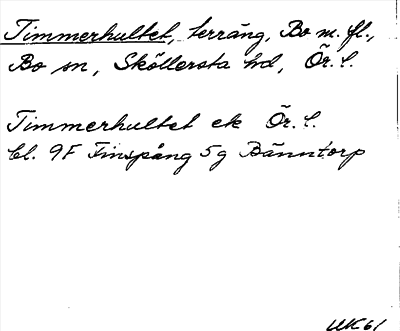 Timmerhultet, terräng, Bo m. fl.,
Bo sn, Sköllersta hd, Ör. l.
Timmerhultet ek Ör. l.
bl. 9F Finspång 5g Bänntorp
UK61